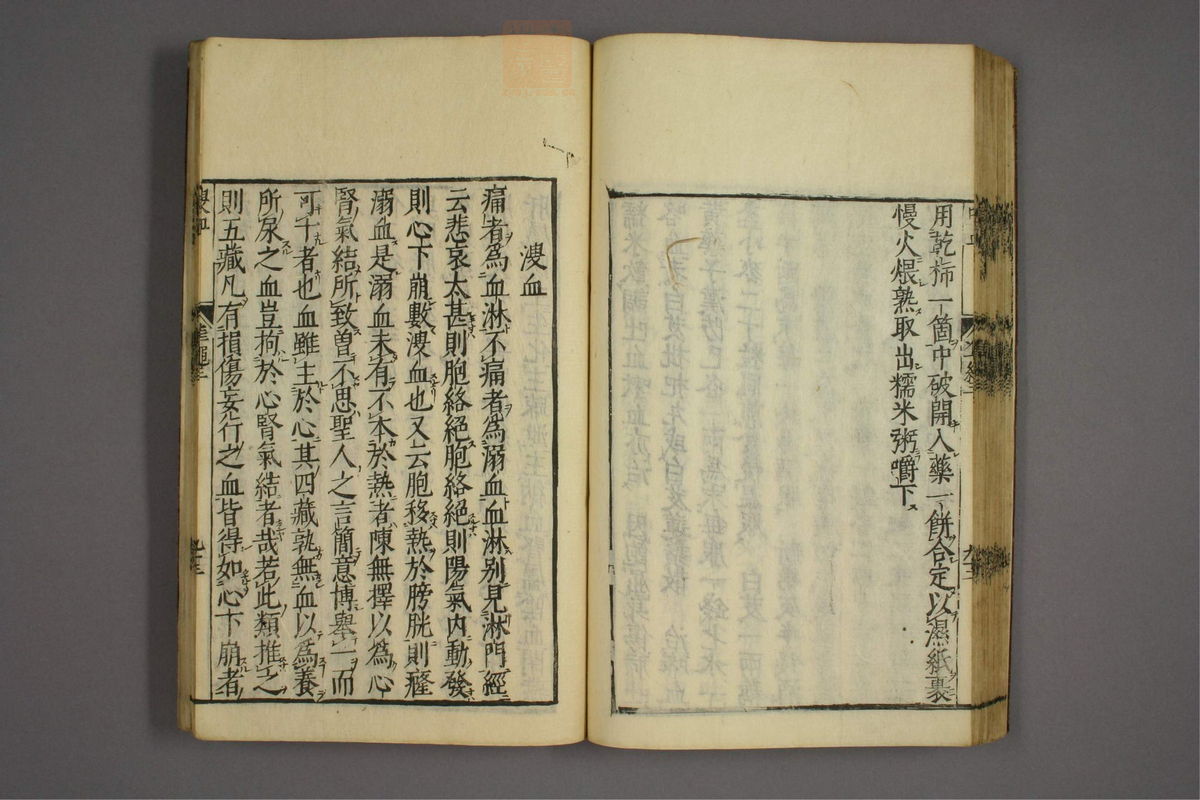 用乾柹一箇中破開入藥一餅合定以濕紙裹
慢火煨熟取出糯米粥嚼下
溲血
痛者爲血淋不痛者爲溺血血淋别見淋門經
云悲哀太甚則胞絡絕胞絡絕則陽氣内動發
則心下崩數溲血也又云胞移熱於膀胱則癃
溺血是溺血未有不本於熱者陳無擇以爲心
腎氣結所致曾不思聖人之言簡意博舉一而
可千者也血雖主於心其四藏孰無血以爲養
所尿之血豈拘於心腎氣結者哉若此類推之
則五藏凡有損傷妄行之血皆得如心下崩者